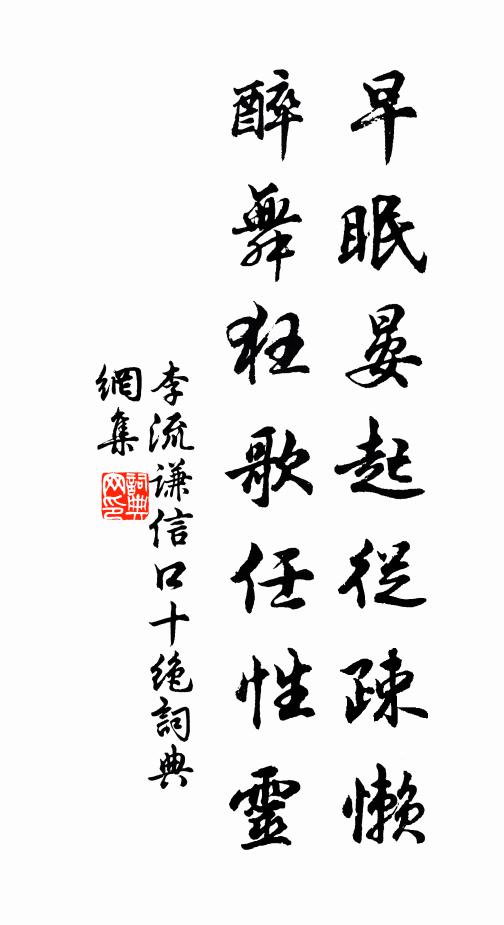 早眠晏起從疎懶
醉舞狂歌任性靈
李流謙信口十絶詞典
網集
詞典
网印